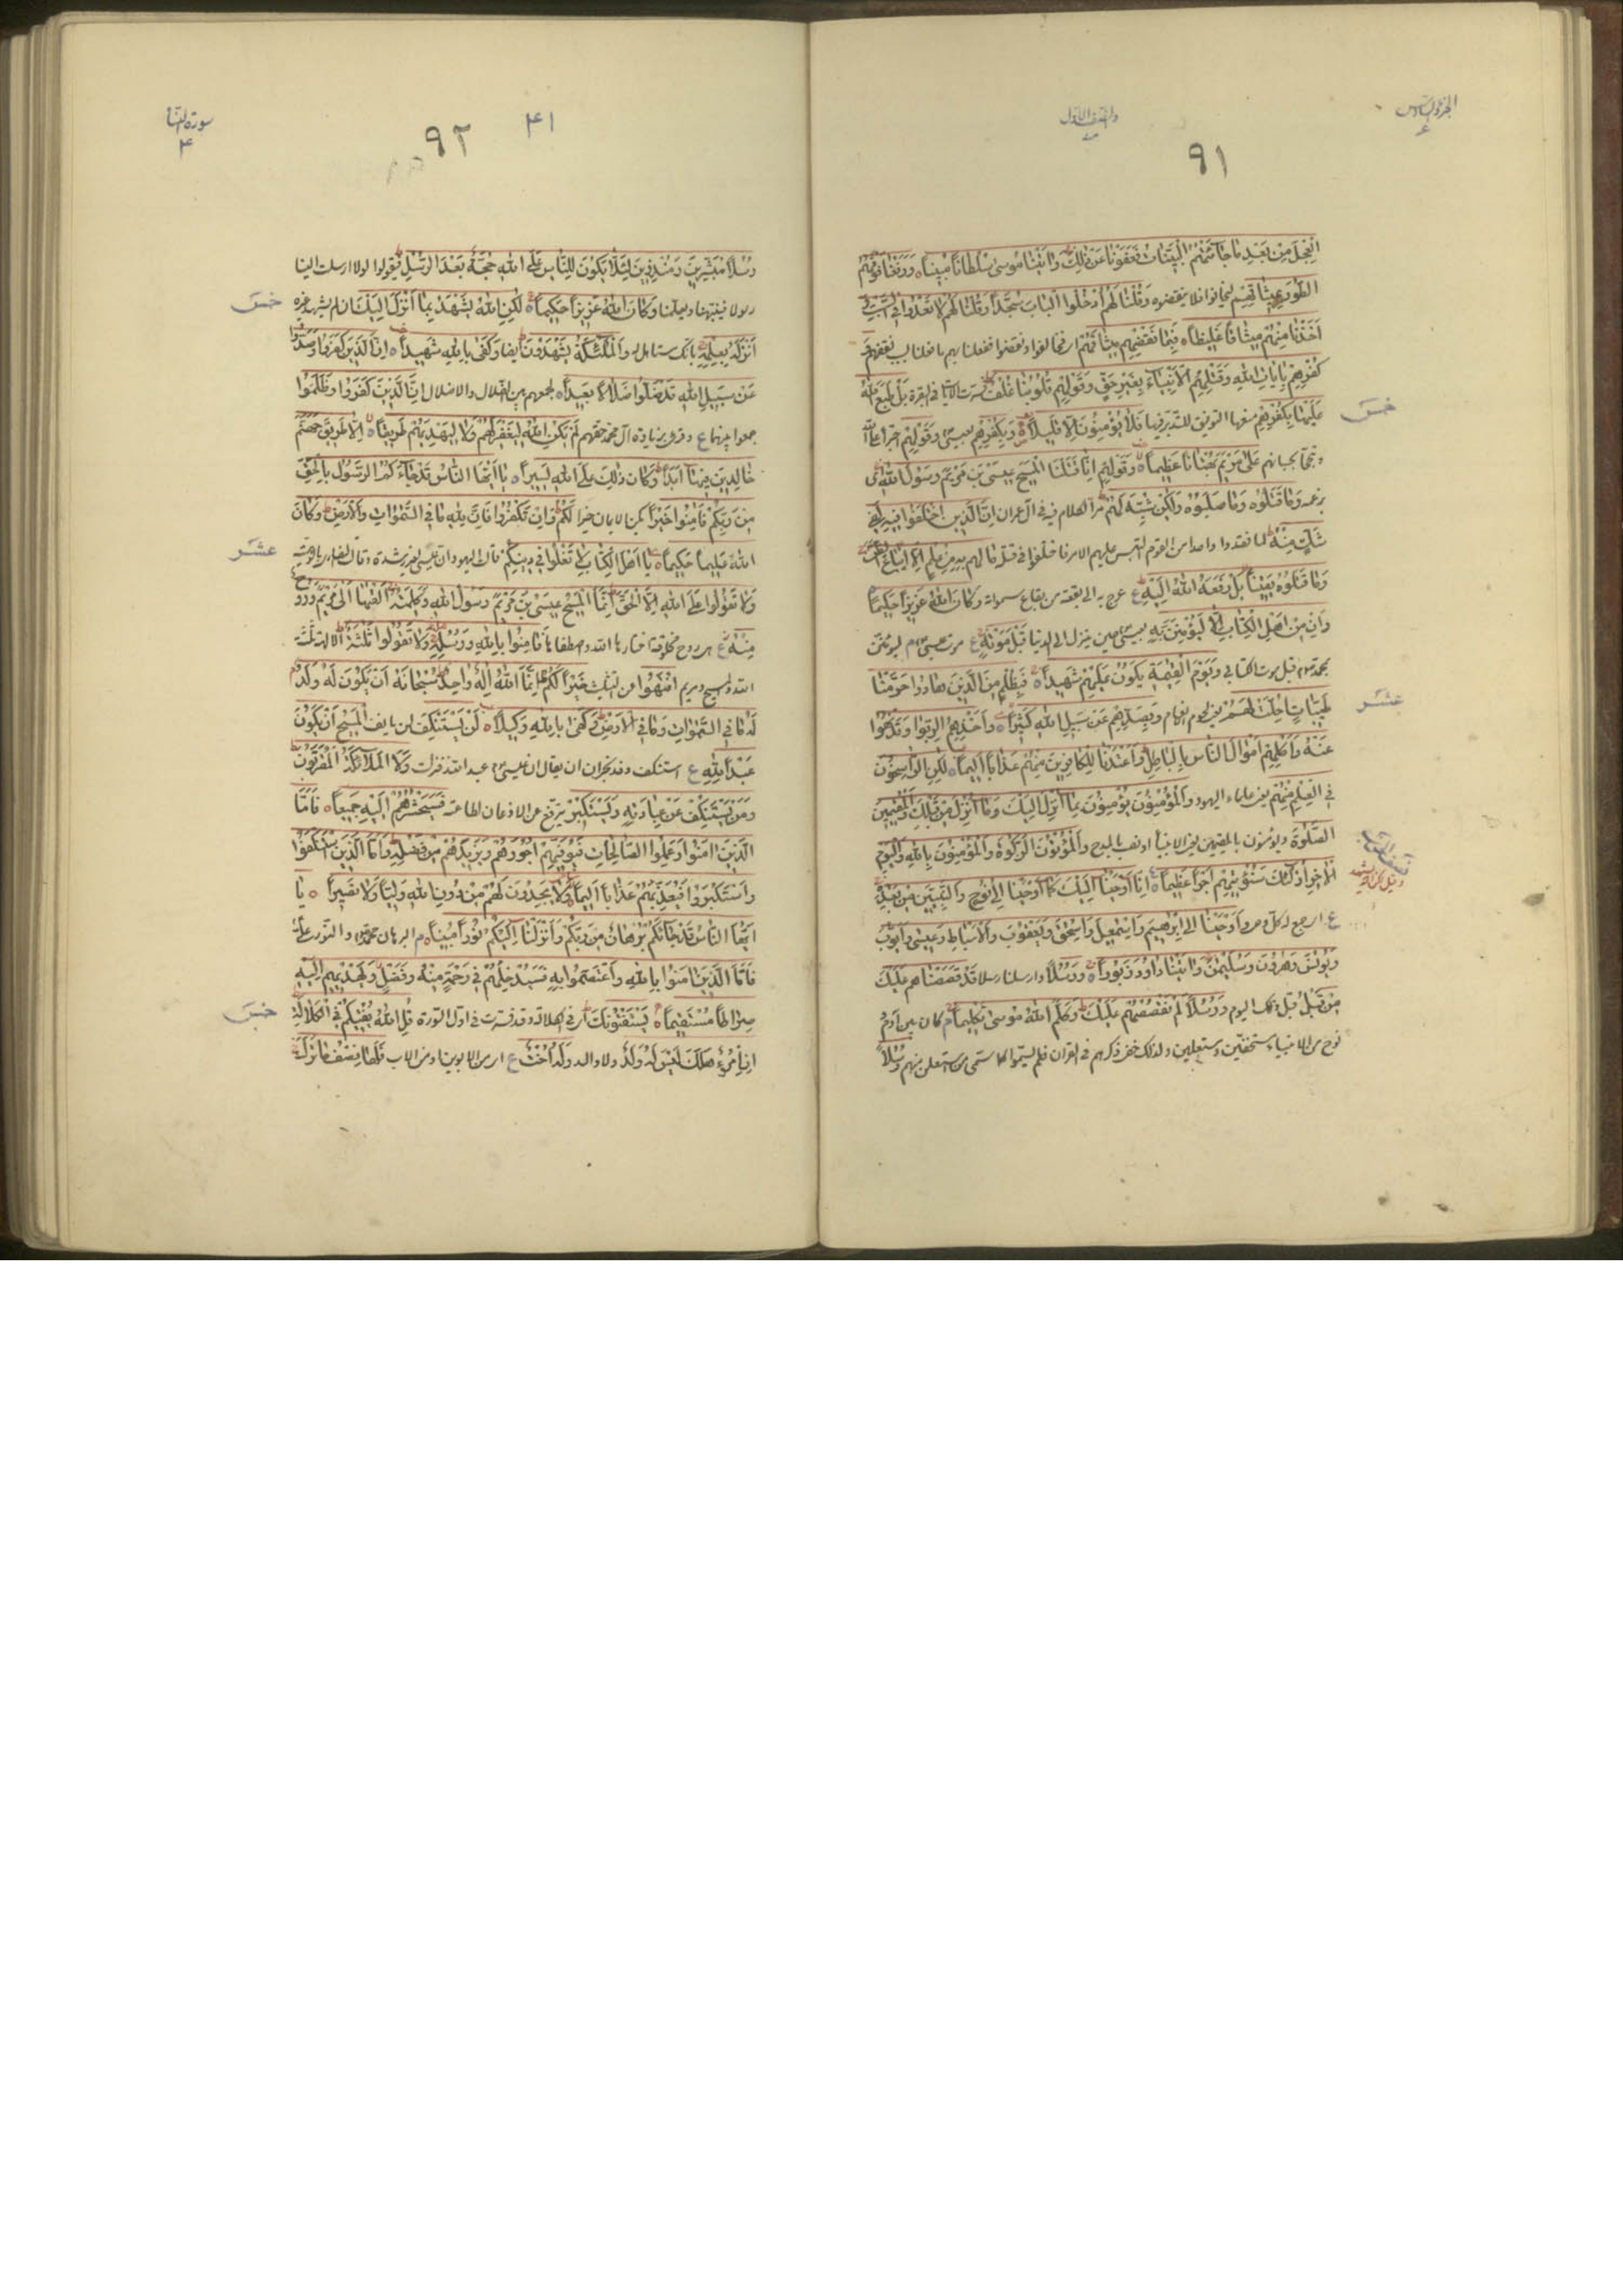 الجزء السادس
٦
والنصف الاول
٩١
العِجْلَ مِنْ بَعْدِ مَا جَاءَتْهُمُ الْبَيِّنَاتُ فَعَفَوْنَا عَنْ ذٰلِكَ وَاٰتَيْنَا مُوسٰى سُلْطَانًا مُبِينًا وَرَفَعْنَا فَوْقَهُمُ
الطُّورَ بِمِيثَاقِهِمْ ليخافوا فلا ينقضوه وَقُلْنَا لَهُمُ ادْخُلُوا الْبَابَ سُجَّدًا وَقُلْنَا لَهُمْ لَا تَعْدُوا فِي السَّبْتِ وَ
اَخَذْنَا مِنْهُمْ مِيثَاقًا غَلِيظًا فَبِمَا نَقْضِهِمْ مِيثَاقَهُمْ فخالفوا ونقضوا ففعلنا بهم ما فعلنا بسبب نقضهم وَ
كُفْرِهِمْ بِاٰيَاتِ اللهِ وَقَتْلِهِمُ الْاَنْبِيَاءَ بِغَيْرِ حَقٍّ وَقَوْلِهِمْ قُلُوبُنَا غُلْفٌ في البقرة بَلْ طَبَعَ اللهُ
عَلَيْهَا بِكُفْرِهِمْ منعها التوفيق للتدبر فيها فَلَا يُؤْمِنُونَ اِلَّا قَلِيلًا وَبِكُفْرِهِمْ بعيسى وَقَوْلِهِمْ
خمس
عَلٰى مَرْيَمَ بُهْتَانًا عَظِيمًا وَقَوْلِهِمْ اِنَّا قَتَلْنَا الْمَسِيحَ عِيسَى بْنَ مَرْيَمَ رَسُولَ اللهِ اى
بزعمه وَمَا قَتَلُوهُ وَمَا صَلَبُوهُ وَلٰكِنْ شُبِّهَ لَهُمْ مر الكلام فيه في آل عمران اِنَّ الَّذِينَ اخْتَلَفُوا فِيهِ لَفِي
شَكٍّ مِنْهُ لما فقدوا واحدا من القوم التبس عليهم الامر فاختلفوا في قتله مَا لَهُمْ بِهِ مِنْ عِلْمٍ اِلَّا اتِّبَاعَ الظَّنِّ
وَمَا قَتَلُوهُ يَقِينًا بَلْ رَفَعَهُ اللهُ اِلَيْهِ ع عرج به الى بقعة من بقاع سمواته وَكَانَ اللهُ عَزِيزًا حَكِيمًا
وَاِنْ مِنْ اَهْلِ الْكِتَابِ اِلَّا لَيُؤْمِنَنَّ بِهِ بعيسى حين ينزل الى الدنيا قَبْلَ مَوْتِهِ ع موت عيسى م ليومنن
بمحمد قبل موت الكتابي وَيَوْمَ الْقِيٰمَةِ يَكُونُ عَلَيْهِمْ شَهِيدًا فَبِظُلْمٍ مِنَ الَّذِينَ هَادُوا حَرَّمْنَا
عشر
طَيِّبَاتٍ اُحِلَّتْ لَهُمْ وَبِصَدِّهِمْ عَنْ سَبِيلِ اللهِ كَثِيرًا وَاَخْذِهِمُ الرِّبٰوا وَقَدْ نُهُوا
عَنْهُ وَاَكْلِهِمْ اَمْوَالَ النَّاسِ بِالْبَاطِلِ وَاَعْتَدْنَا لِلْكَافِرِينَ مِنْهُمْ عَذَابًا اَلِيمًا لٰكِنِ الرَّاسِخُونَ
فِي الْعِلْمِ مِنْهُمْ علماء اليهود وَالْمُؤْمِنُونَ يُؤْمِنُونَ بِمَا اُنْزِلَ اِلَيْكَ وَمَا اُنْزِلَ مِنْ قَبْلِكَ وَالْمُقِيمِينَ
الصَّلٰوةَ ويؤمنون بالمقيمين الانبياء او نصب بالمدح وَالْمُؤْتُونَ الزَّكٰوةَ وَالْمُؤْمِنُونَ بِاللهِ وَالْيَوْمِ
الْاٰخِرِ اُولٰئِكَ سَنُؤْتِيهِمْ اَجْرًا عَظِيمًا اِنَّا اَوْحَيْنَا اِلَيْكَ كَمَا اَوْحَيْنَا اِلٰى نُوحٍ وَالنَّبِيِّينَ مِنْ بَعْدِهِ
وَاَوْحَيْنَا اِلٰى اِبْرٰهِيمَ وَاِسْمٰعِيلَ وَاِسْحٰقَ وَيَعْقُوبَ وَالْاَسْبَاطِ وَعِيسٰى وَاَيُّوبَ
وَيُونُسَ وَهٰرُونَ وَسُلَيْمٰنَ وَاٰتَيْنَا دَاوُدَ زَبُورًا وَرُسُلًا وارسلنا رسلا قَدْ قَصَصْنَاهُمْ عَلَيْكَ
مِنْ قَبْلُ قبل اليوم وَرُسُلًا لَمْ نَقْصُصْهُمْ عَلَيْكَ وَكَلَّمَ اللهُ مُوسٰى تَكْلِيمًا م كان بين آدم و
نوح من الانبياء مستخفين ومستعلنين ولذلك خفى ذكرهم في القران فلم يسموا كما سمى من استعلن منهم رُسُلًا
سورة النساء
٤
٤١
٩٢
رُسُلًا مُبَشِّرِينَ وَمُنْذِرِينَ لِئَلَّا يَكُونَ لِلنَّاسِ عَلَى اللهِ حُجَّةٌ بَعْدَ الرُّسُلِ فيقولوا لولا ارسلت الينا
رسولا فينبهنا ويعلمنا وَكَانَ اللهُ عَزِيزًا حَكِيمًا لٰكِنِ اللهُ يَشْهَدُ بِمَا اَنْزَلَ اِلَيْكَ ان لم يشهد غيره
خمس
اَنْزَلَهُ بِعِلْمِهِ بانك مستاهل له وَالْمَلٰئِكَةُ يَشْهَدُونَ ايضا وَكَفٰى بِاللهِ شَهِيدًا اِنَّ الَّذِينَ كَفَرُوا وَصَدُّوا
عَنْ سَبِيلِ اللهِ قَدْ ضَلُّوا ضَلَالًا بَعِيدًا لجمعهم بين الضلال والاضلال اِنَّ الَّذِينَ كَفَرُوا وَظَلَمُوا
جمعوا بينهما ع وقرئ بزيادة آل محمد حقهم لَمْ يَكُنِ اللهُ لِيَغْفِرَ لَهُمْ وَلَا لِيَهْدِيَهُمْ طَرِيقًا اِلَّا طَرِيقَ جَهَنَّمَ
خَالِدِينَ فِيهَا اَبَدًا وَكَانَ ذٰلِكَ عَلَى اللهِ يَسِيرًا يَا اَيُّهَا النَّاسُ قَدْ جَاءَكُمُ الرَّسُولُ بِالْحَقِّ
مِنْ رَبِّكُمْ فَاٰمِنُوا خَيْرًا يكن الايمان خيرا لَكُمْ وَاِنْ تَكْفُرُوا فَاِنَّ لِلهِ مَا فِي السَّمٰوَاتِ وَالْاَرْضِ وَكَانَ
اللهُ عَلِيمًا حَكِيمًا يَا اَهْلَ الْكِتَابِ لَا تَغْلُوا فِي دِينِكُمْ قالت اليهود ان عيسى لغير رشدة وقال النصارى بالوهيته
عشر
وَلَا تَقُولُوا عَلَى اللهِ اِلَّا الْحَقَّ اِنَّمَا الْمَسِيحُ عِيسَى بْنُ مَرْيَمَ رَسُولُ اللهِ وَكَلِمَتُهُ اَلْقٰهَا اِلٰى مَرْيَمَ وَرُوحٌ
مِنْهُ ع هى روح مخلوقة اختارها الله واصطفاها فَاٰمِنُوا بِاللهِ وَرُسُلِهِ وَلَا تَقُولُوا ثَلٰثَةٌ الالهة ثلثة
الله والمسيح ومريم انْتَهُوا عن التثليث خَيْرًا لَكُمْ اِنَّمَا اللهُ اِلٰهٌ وَاحِدٌ سُبْحَانَهُ اَنْ يَكُونَ لَهُ وَلَدٌ
لَهُ مَا فِي السَّمٰوَاتِ وَمَا فِي الْاَرْضِ وَكَفٰى بِاللهِ وَكِيلًا لَنْ يَسْتَنْكِفَ لن يانف الْمَسِيحُ اَنْ يَكُونَ
عَبْدًا لِلهِ ع استنكف وفد نجران ان يقال ان عيسى عبد الله فنزلت وَلَا الْمَلَائِكَةُ الْمُقَرَّبُونَ
وَمَنْ يَسْتَنْكِفْ عَنْ عِبَادَتِهِ وَيَسْتَكْبِرْ يترفع عن الاذعان لطاعته فَسَيَحْشُرُهُمْ اِلَيْهِ جَمِيعًا فَاَمَّا
الَّذِينَ اٰمَنُوا وَعَمِلُوا الصَّالِحَاتِ فَيُوَفِّيهِمْ اُجُورَهُمْ وَيَزِيدُهُمْ مِنْ فَضْلِهِ وَاَمَّا الَّذِينَ اسْتَنْكَفُوا
وَاسْتَكْبَرُوا فَيُعَذِّبُهُمْ عَذَابًا اَلِيمًا وَلَا يَجِدُونَ لَهُمْ مِنْ دُونِ اللهِ وَلِيًّا وَلَا نَصِيرًا يَا
اَيُّهَا النَّاسُ قَدْ جَاءَكُمْ بُرْهَانٌ مِنْ رَبِّكُمْ وَاَنْزَلْنَا اِلَيْكُمْ نُورًا مُبِينًا م البرهان محمد والنور على
فَاَمَّا الَّذِينَ اٰمَنُوا بِاللهِ وَاعْتَصَمُوا بِهِ فَسَيُدْخِلُهُمْ فِي رَحْمَةٍ مِنْهُ وَفَضْلٍ وَيَهْدِيهِمْ اِلَيْهِ
صِرَاطًا مُسْتَقِيمًا يَسْتَفْتُونَكَ اى في الكلالة وقد فسرت في اول السورة قُلِ اللهُ يُفْتِيكُمْ فِي الْكَلَالَةِ
خمس
اِنِ امْرُؤٌ هَلَكَ لَيْسَ لَهُ وَلَدٌ ولا والد وَلَهُ اُخْتٌ ع اى من الابوين او من الاب فَلَهَا نِصْفُ مَا تَرَكَ